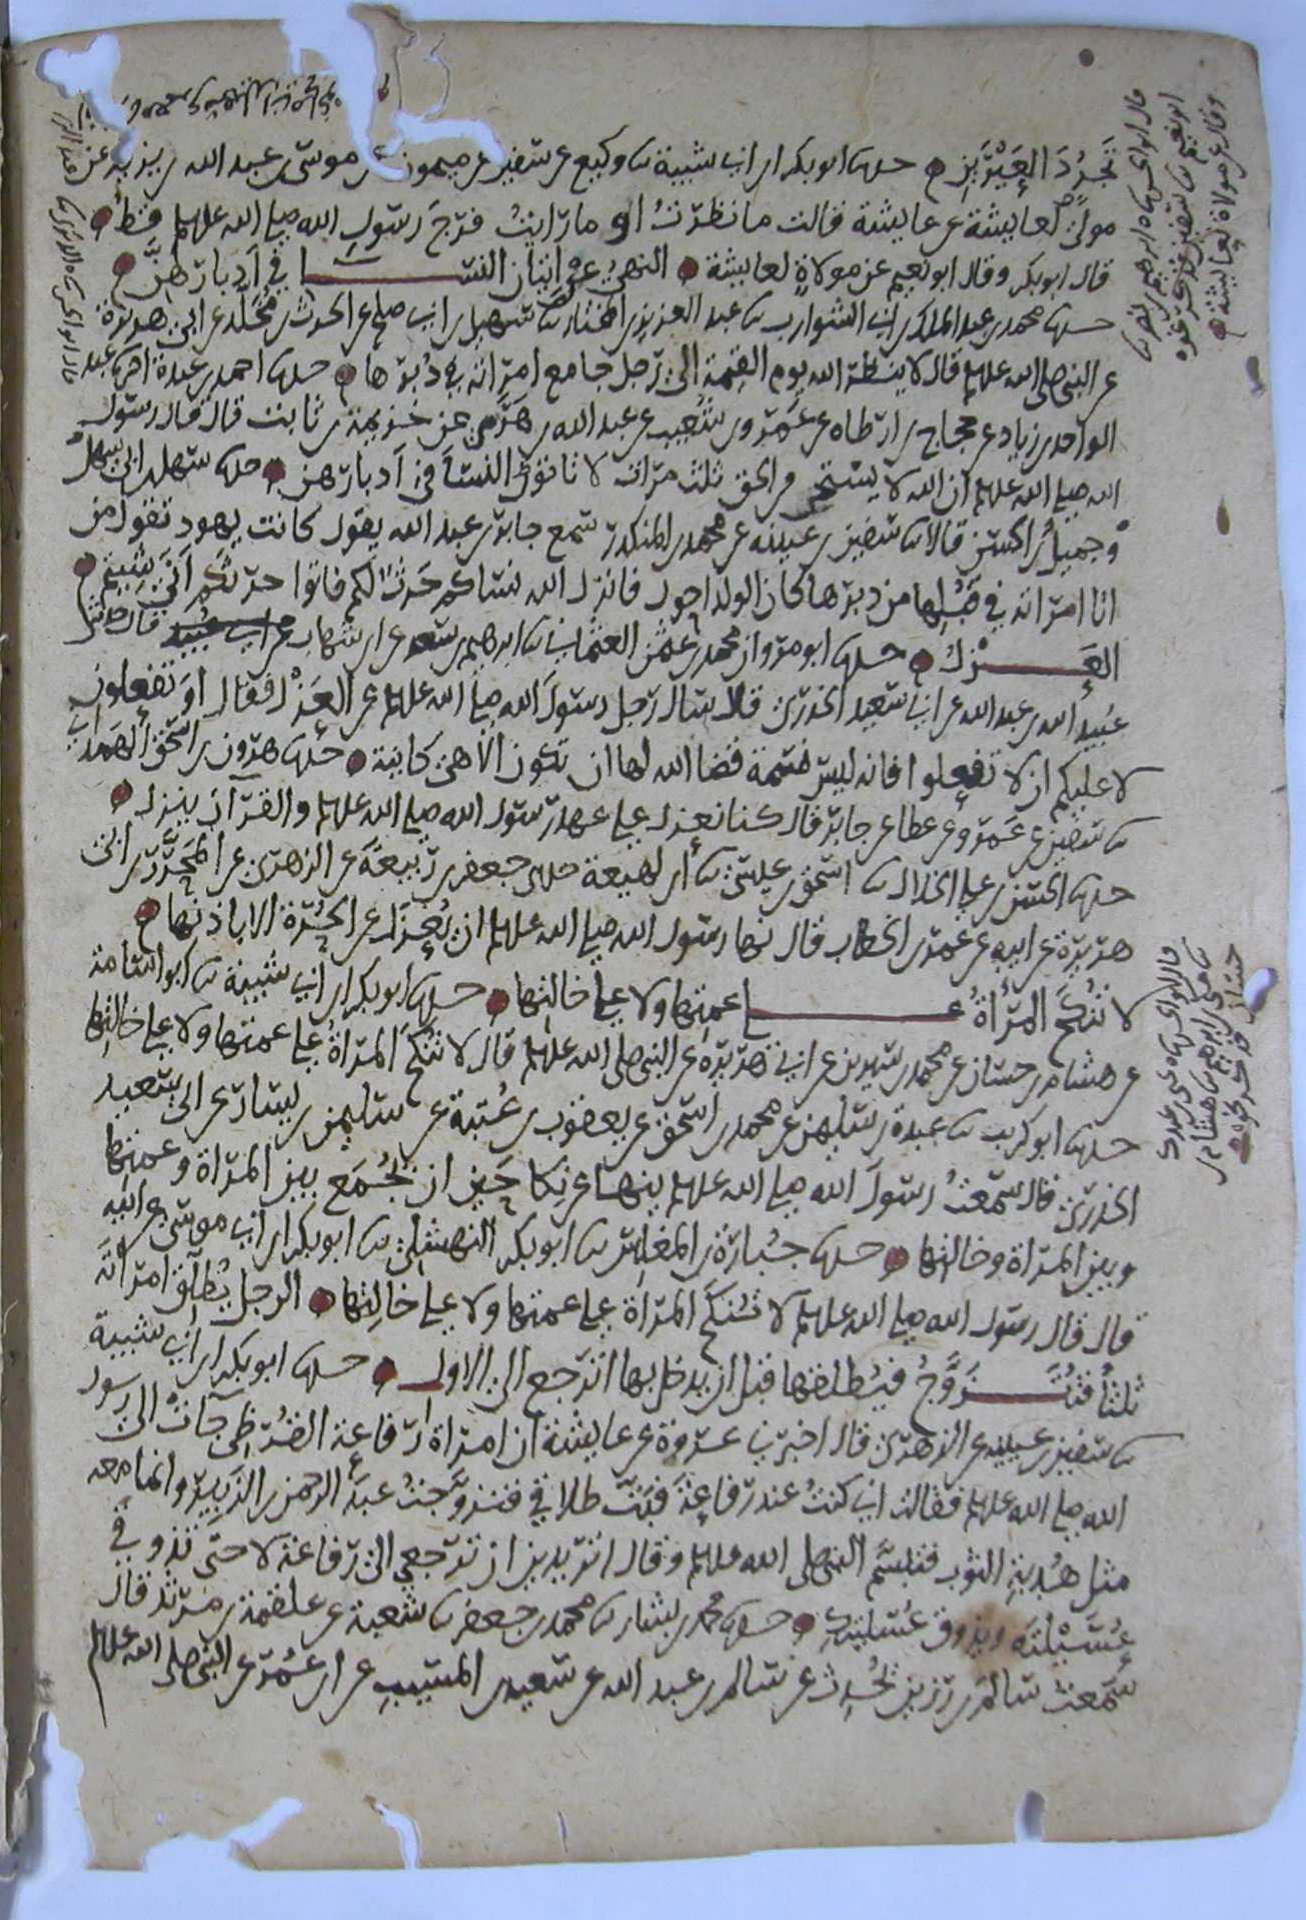 تَجَرُّدَ العَيْرَيْنِ حدثنا ابو بكر ابن ابي شيبة ثنا وكيع عن سفين عن منصور عن موسى بن عبد الله بن يزيد عن
مولىً لعايشة عن عايشة قالت ما نظرتُ او ما رايتُ فرجَ رسول الله صلى الله عليه وسلم قطُّ
قال ابو بكر وقال ابو نعيم عن مولاةٍ لعايشة النهيُ عن اتيان النسا في ادبارهنَّ
حدثنا محمد بن عبد الملك بن ابي الشوارب ثنا عبد العزيز بن المختار عن سهيل بن ابي صالح عن الحرث بن مُخَلَّد عن ابي هريرة
عن النبي صلى الله عليه وسلم قال لا ينظر الله يوم القيمة الى رجل جامع امراته في دُبرها حدثنا احمد بن عبدة انا عبد
الواحد بن زياد عن حجاج بن ارطاه عن عمرو بن شعيب عن عبد الله بن هَرَمي عن خزيمة بن ثابت قال قال رسول
الله صلى الله عليه وسلم ان الله لا يستحي من الحق ثلث مرات لا تاتوا النسآ في ادبارهن حدثنا سهل بن ابي سهل
وجميلُ بن الحسن قالا ثنا سفين بن عيينه عن محمد بن المنكدر سمع جابر بن عبد الله يقول كانت يهود تقول من
اتا امراته في قُبُلِها من دبرها كان الولد احول فانزل الله نساكم حَرْثٌ لكم فاتوا حرثكم اَنَّى شِيتم
العَزْلُ حدثنا ابو مروان محمد بن عثمن العثماني ثنا ابرهيم بن سعد عن ابن شهاب قال حدثنا
عُبيد الله بن عبد الله عن ابي سعيد الخدري قال سال رجل رسولَ الله صلى الله عليه وسلم عن العَزْل فقال اوَ تفعلون
لا عليكم ان لا تفعلوا فانه ليس نسمة قضا الله لها ان تكون الا هي كاينة حدثنا هرون بن اسحق الهَمْداني
ثنا سفين عن عمرو عن عطا عن جابر قال كنا نعزل على عهد رسول الله صلى الله عليه وسلم والقرآن ينزل
حدثنا الحسن بن علي الخلال ثنا اسحق بن عيسى ثنا ابن لهيعة حدثني جعفر بن ربيعةَ عن الزهري عن المُحَرَّر بن ابي
هريرة عن ابيه عن عمر بن الخطاب قال نها رسول الله صلى الله عليه وسلم ان يُعزَل عن الحُرَّة الا باذنها
لا تُنْكَحُ المرأةُ على عمتها ولا على خالتها حدثنا ابو بكر ابن ابي شيبة ثنا ابو اسامة
عن هشام بن حسان عن محمد بن سيرين عن ابي هريرة عن النبي صلى الله عليه وسلم قال لا تنكح المراةُ على عمتها ولا على خالتها
حدثنا ابو كريب ثنا عبدة بن سليمن عن محمد بن اسحق عن يعقوب بن عُتبة عن سليمن بن يسار عن ابي سعيد
الخدري قال سمعتُ رسولَ الله صلى الله عليه وسلم ينها عن نكاحَين ان يُجمَع بين المراة وعمتها
وبين المراة وخالتها حدثنا جُبارة بن المغلس ثنا ابو بكر النهشلي ثنا ابو بكر ابن ابي موسى عن ابيه
قال قال رسول الله صلى الله عليه وسلم لا تُنكح المراة على عمتها ولا على خالِتها الرجل يُطلِّق امراتَه
ثلثًا فتُزَوَّجُ فيُطلقها قبل ان يدخل بها اترجع الى الاول حدثنا ابو بكر ابن ابي شيبة
ثنا سفين بن عيينه عن الزهري قال اخبرني عروة عن عايشة ان امراة رفاعة القُرَظي جآت الى رسول
الله صلى الله عليه وسلم فقالت اني كنتُ عند رفاعةَ فبَتَّ طلاقي فتزوَّجتُ عبدَ الرحمن بن الزَبِير وانما معه
مثل هُدبةِ الثوب فتبسَّم النبي صلى الله عليه وسلم وقال اتريدين ان ترجعي الى رفاعة لا حتى تذوقي
عُسَيْلتَه ويذوق عُسيلتكِ حدثنا محمد بن بشار ثنا محمد بن جعفر ثنا شعبة عن علقمة بن مرثد قال
سمعت سالمَ بن رزين يُحدث عن سالم بن عبد الله عن سعيد بن المسيبِ عن ابن عُمر عن النبي صلى الله عليه وسلم